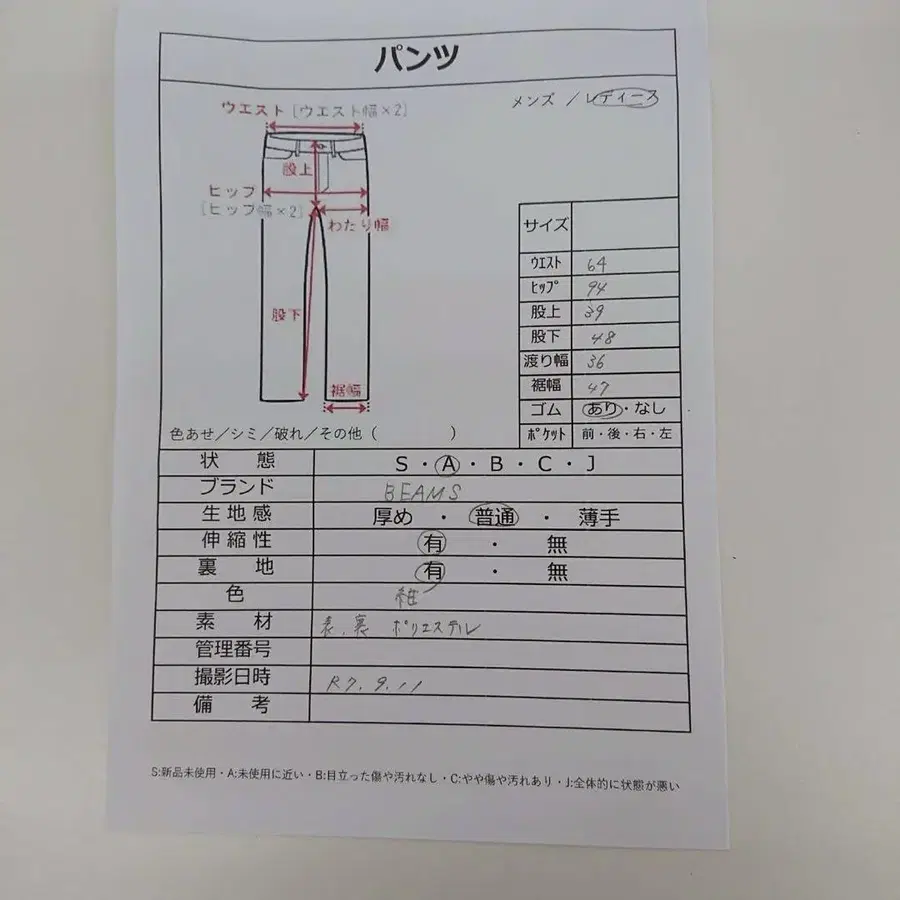 パンツ
メンズ / レディース
ウエスト [ウエスト幅×2]
股上
ヒップ
[ヒップ幅×2]
わたり幅
股下
裾幅
サイズ
ウエスト 64
ヒップ 94
股上 39
股下 48
渡り幅 36
裾幅 47
ゴム あり・なし
ポケット 前・後・右・左
色あせ／シミ／破れ／その他（ ）
状態 S・A・B・C・J
ブランド BEAMS
生地感 厚め ・ 普通 ・ 薄手
伸縮性 有 ・ 無
裏地 有 ・ 無
色 紺
素材 表、裏 ポリエステル
管理番号
撮影日時 R7.9.11
備考
S:新品未使用・A:未使用に近い・B:目立った傷や汚れなし・C:やや傷や汚れあり・J:全体的に状態が悪い